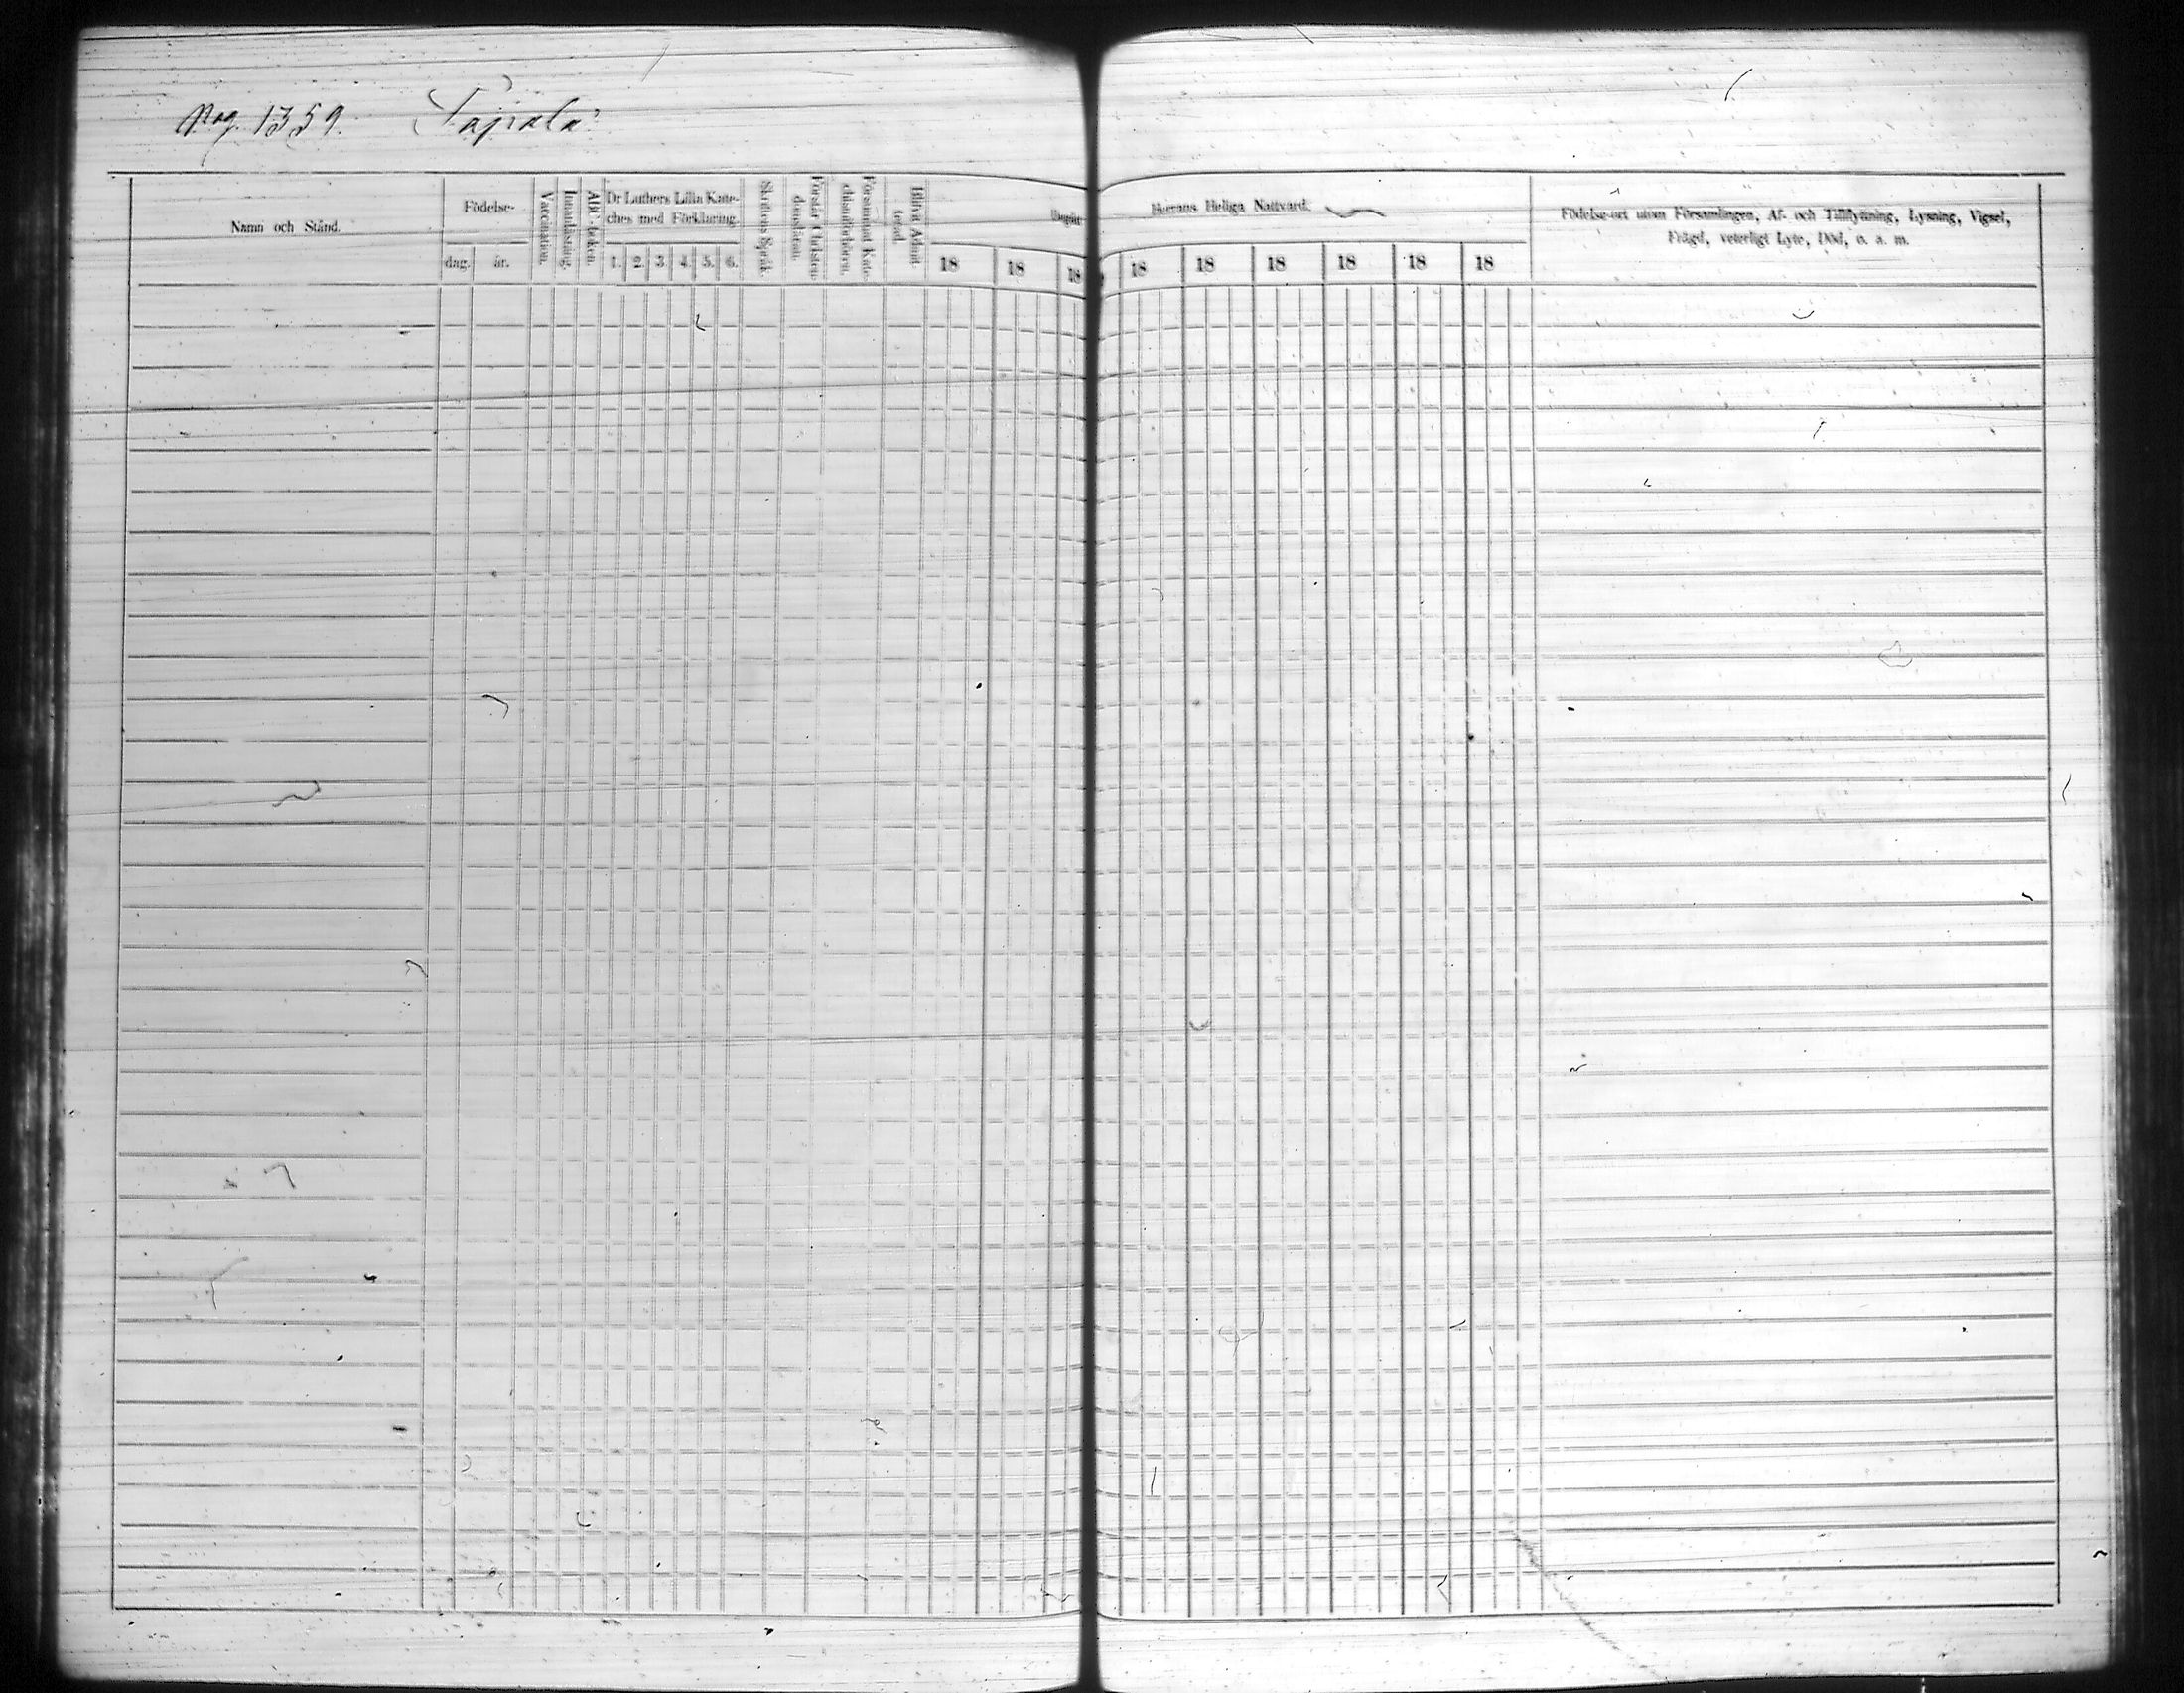 Pag. 1359. Tapiala
Namn och Stånd.
Födelse-
dag. år.
Vaccination.
Innanläsning.
ABC-boken.
Dr Luthers Lilla Kate-
ches med Förklaring.
1. 2. 3. 4. 5. 6.
Skriftens Språk.
Förstår Christen-
domsläran.
Försummat Kate-
chismiförhören.
Blifvit Admit-
terad.
18 18 18
Herrans Heliga Nattvard.
18 18 18 18 18 18
Födelse-ort utom Församlingen, Af- och Tillflyttning, Lysning, Vigsel,
Frägd, veterligt Lyte, Död, o. s. m.